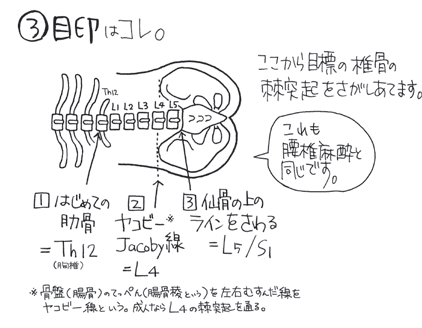 ③目印はコレ。
ここから目標の椎骨の
棘突起をさがしあてます。
Th12
L1 L2 L3 L4 L5
これも
腰椎麻酔と
同じです。
1 はじめての
肋骨
=Th12
(胸椎)
2 ヤコビー*
Jacoby線
=L4
3 仙骨の上の
ラインをさわる
=L5/S1
*骨盤(腸骨)のてっぺん(腸骨稜という)を左右むすんだ線を
ヤコビー線という。成人ならL4の棘突起を通る。